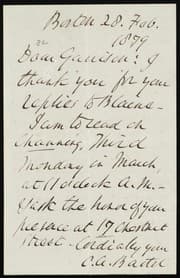 Boston 28. Feb.
1879
Dear Garrison: I
thank you for your
replies to Blaine –
I am to read on
Channing, Third
Monday in March,
at 11 o'clock A.M. –
& ask the honor of your
presence at 17 Chestnut
Street – Cordially yours
C. A. Bartol